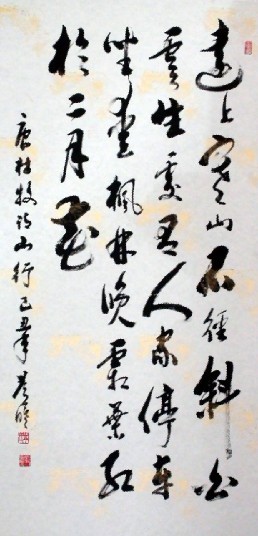 遠上寒山石徑斜白
雲生處有人家停車
坐愛楓林晚霜葉紅
於二月花
唐杜牧詩山行己丑年